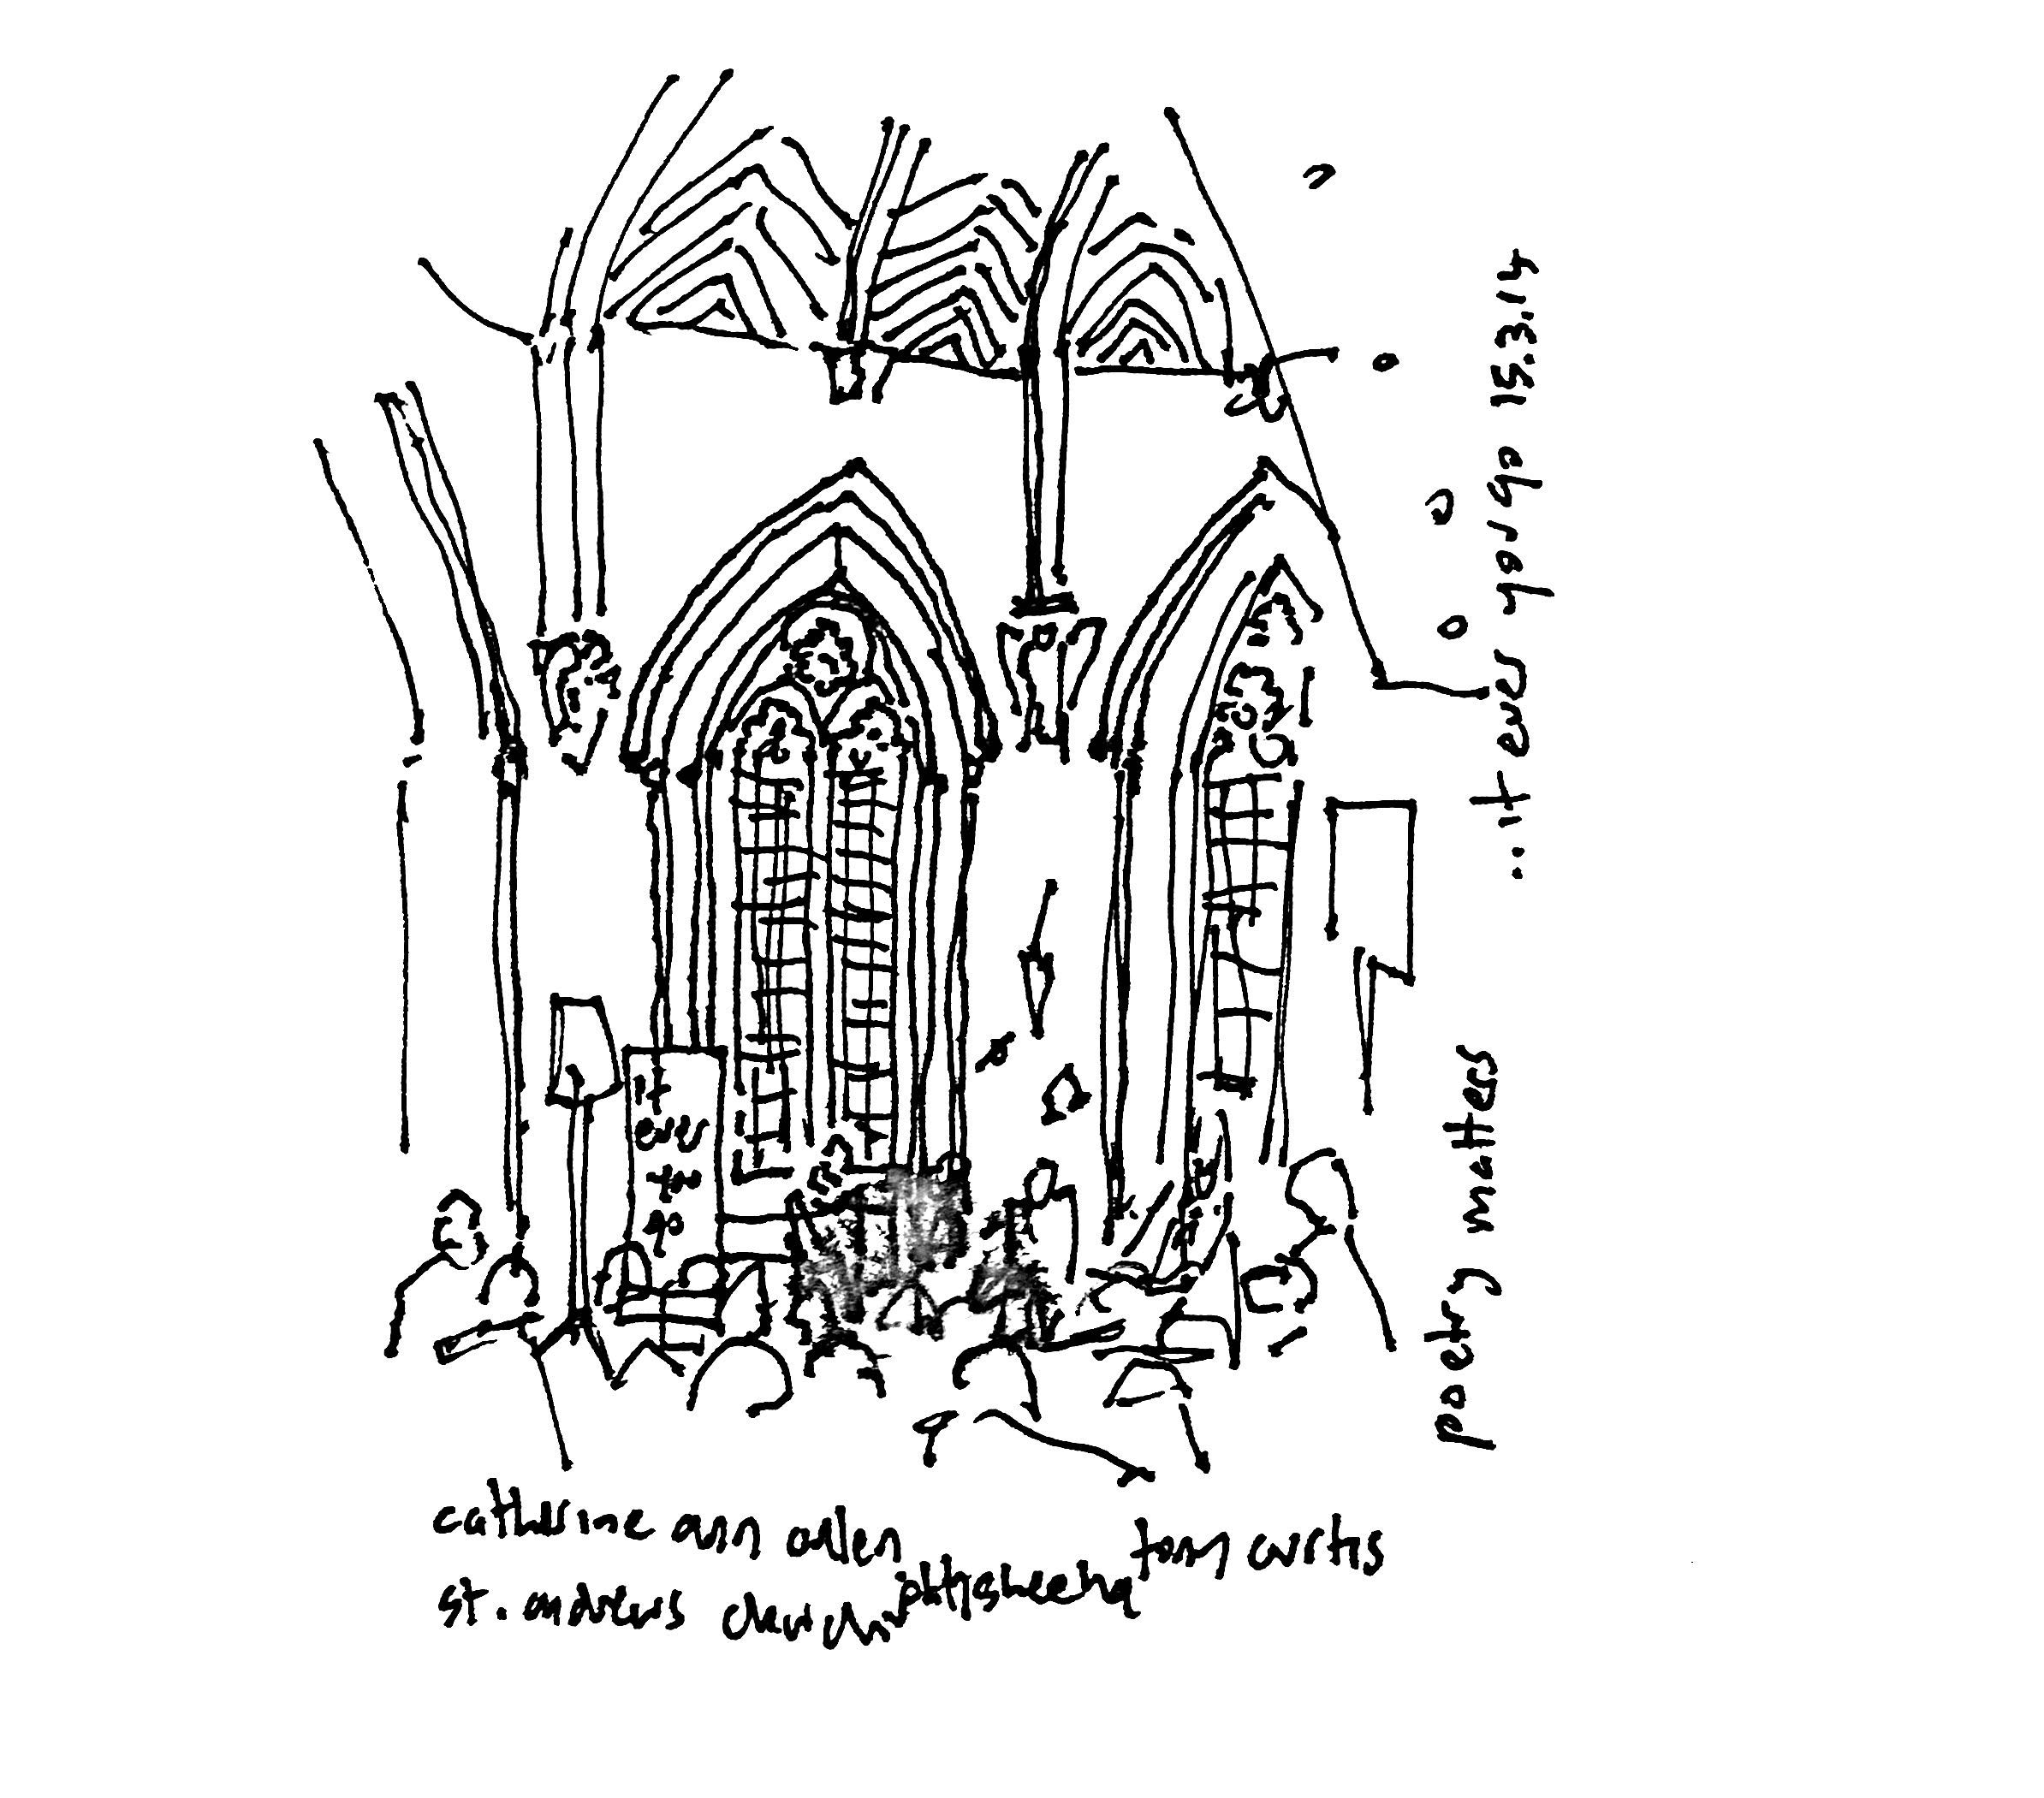 if
ever
you
go
catherine ann cullen
tony curtis
st. andrews church
pat sheehy
poetry matters
..if ever you go 15.3.14